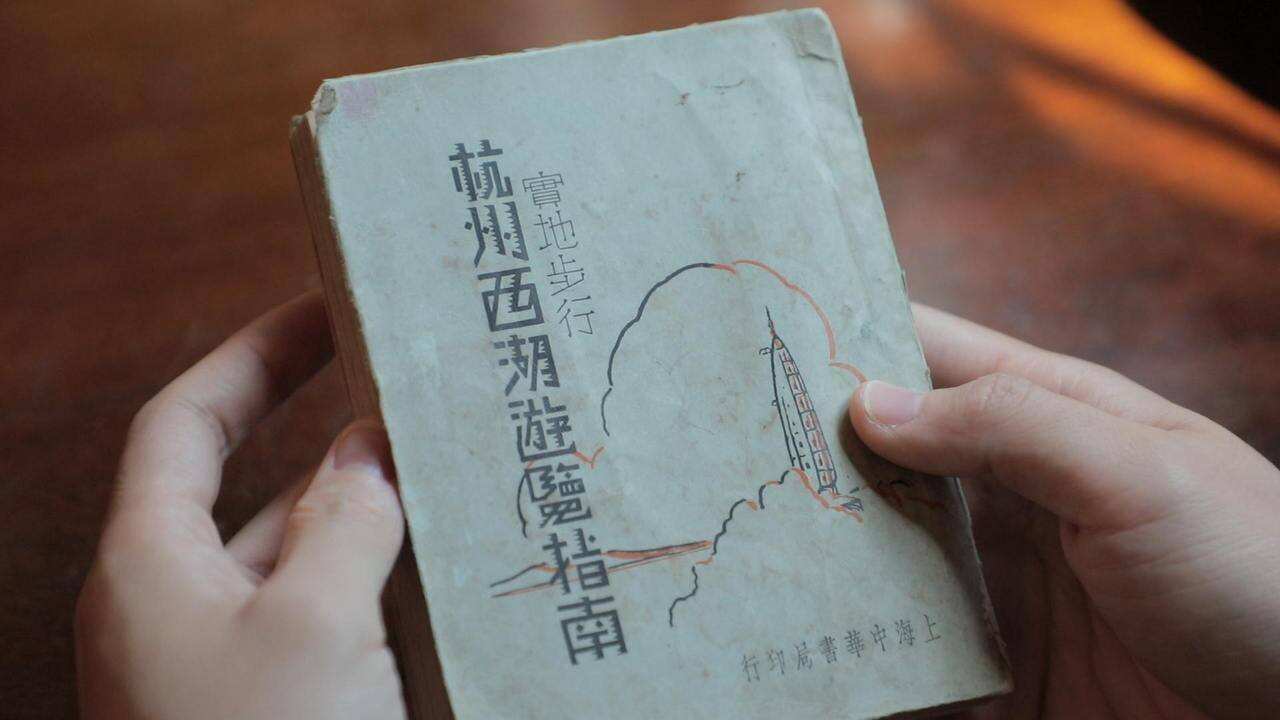 實地步行
杭州西湖遊覽指南
上海中華書局印行